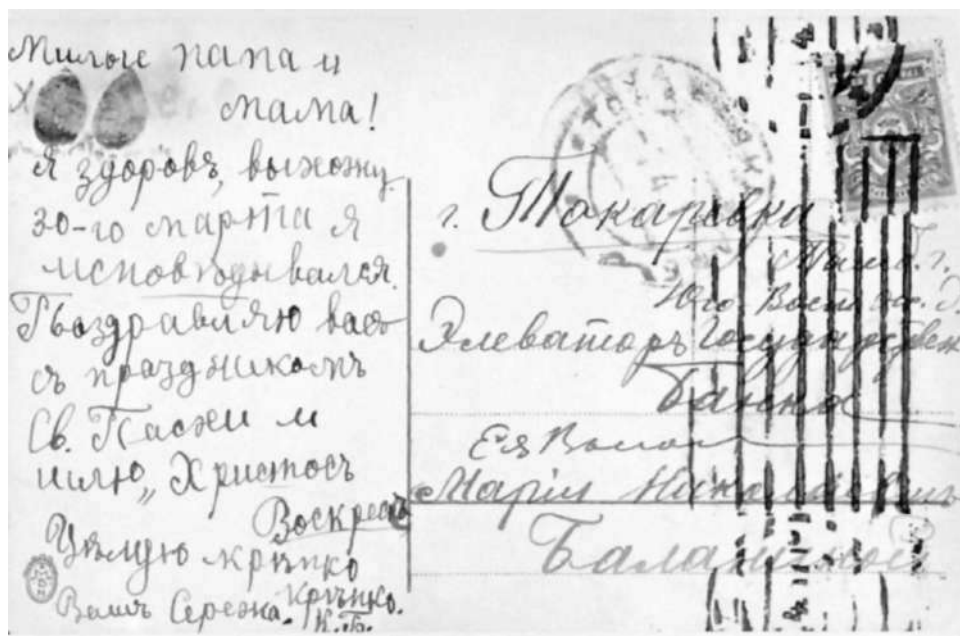 Милые папа и
мама!
Я здоровъ, выхожу.
30-го марта я
исповѣдывался.
Поздравляю васъ
съ праздникомъ
Св. Пасхи и
шлю „Христосъ
Воскресъ
Цѣлую крѣпко
крѣпко.
Вашъ Сережа.
К.Б.
г. Токаревка
Тамб. г.
Юго-Вост.
Элеваторъ Государствен
Банка
Ея Высок
Маріи Николаевнѣ